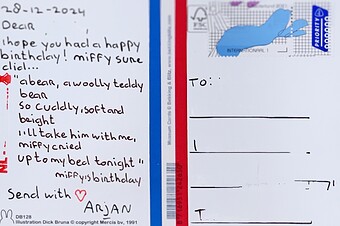 28-12-2024
Dear
I hope you had a happy
birthday! miffy sure
did...
"a bear, a woolly teddy
bear
so cuddly, soft and
beight
I'll take him with me,
miffy cried
up to my bed tonight"
miffy's birthday
Send with ♡
ARJAN
NL-
DB128
Illustration Dick Bruna © copyright Mercis bv, 1991
FSC
INTERNATIONAL 1
PRIORITY
TO: